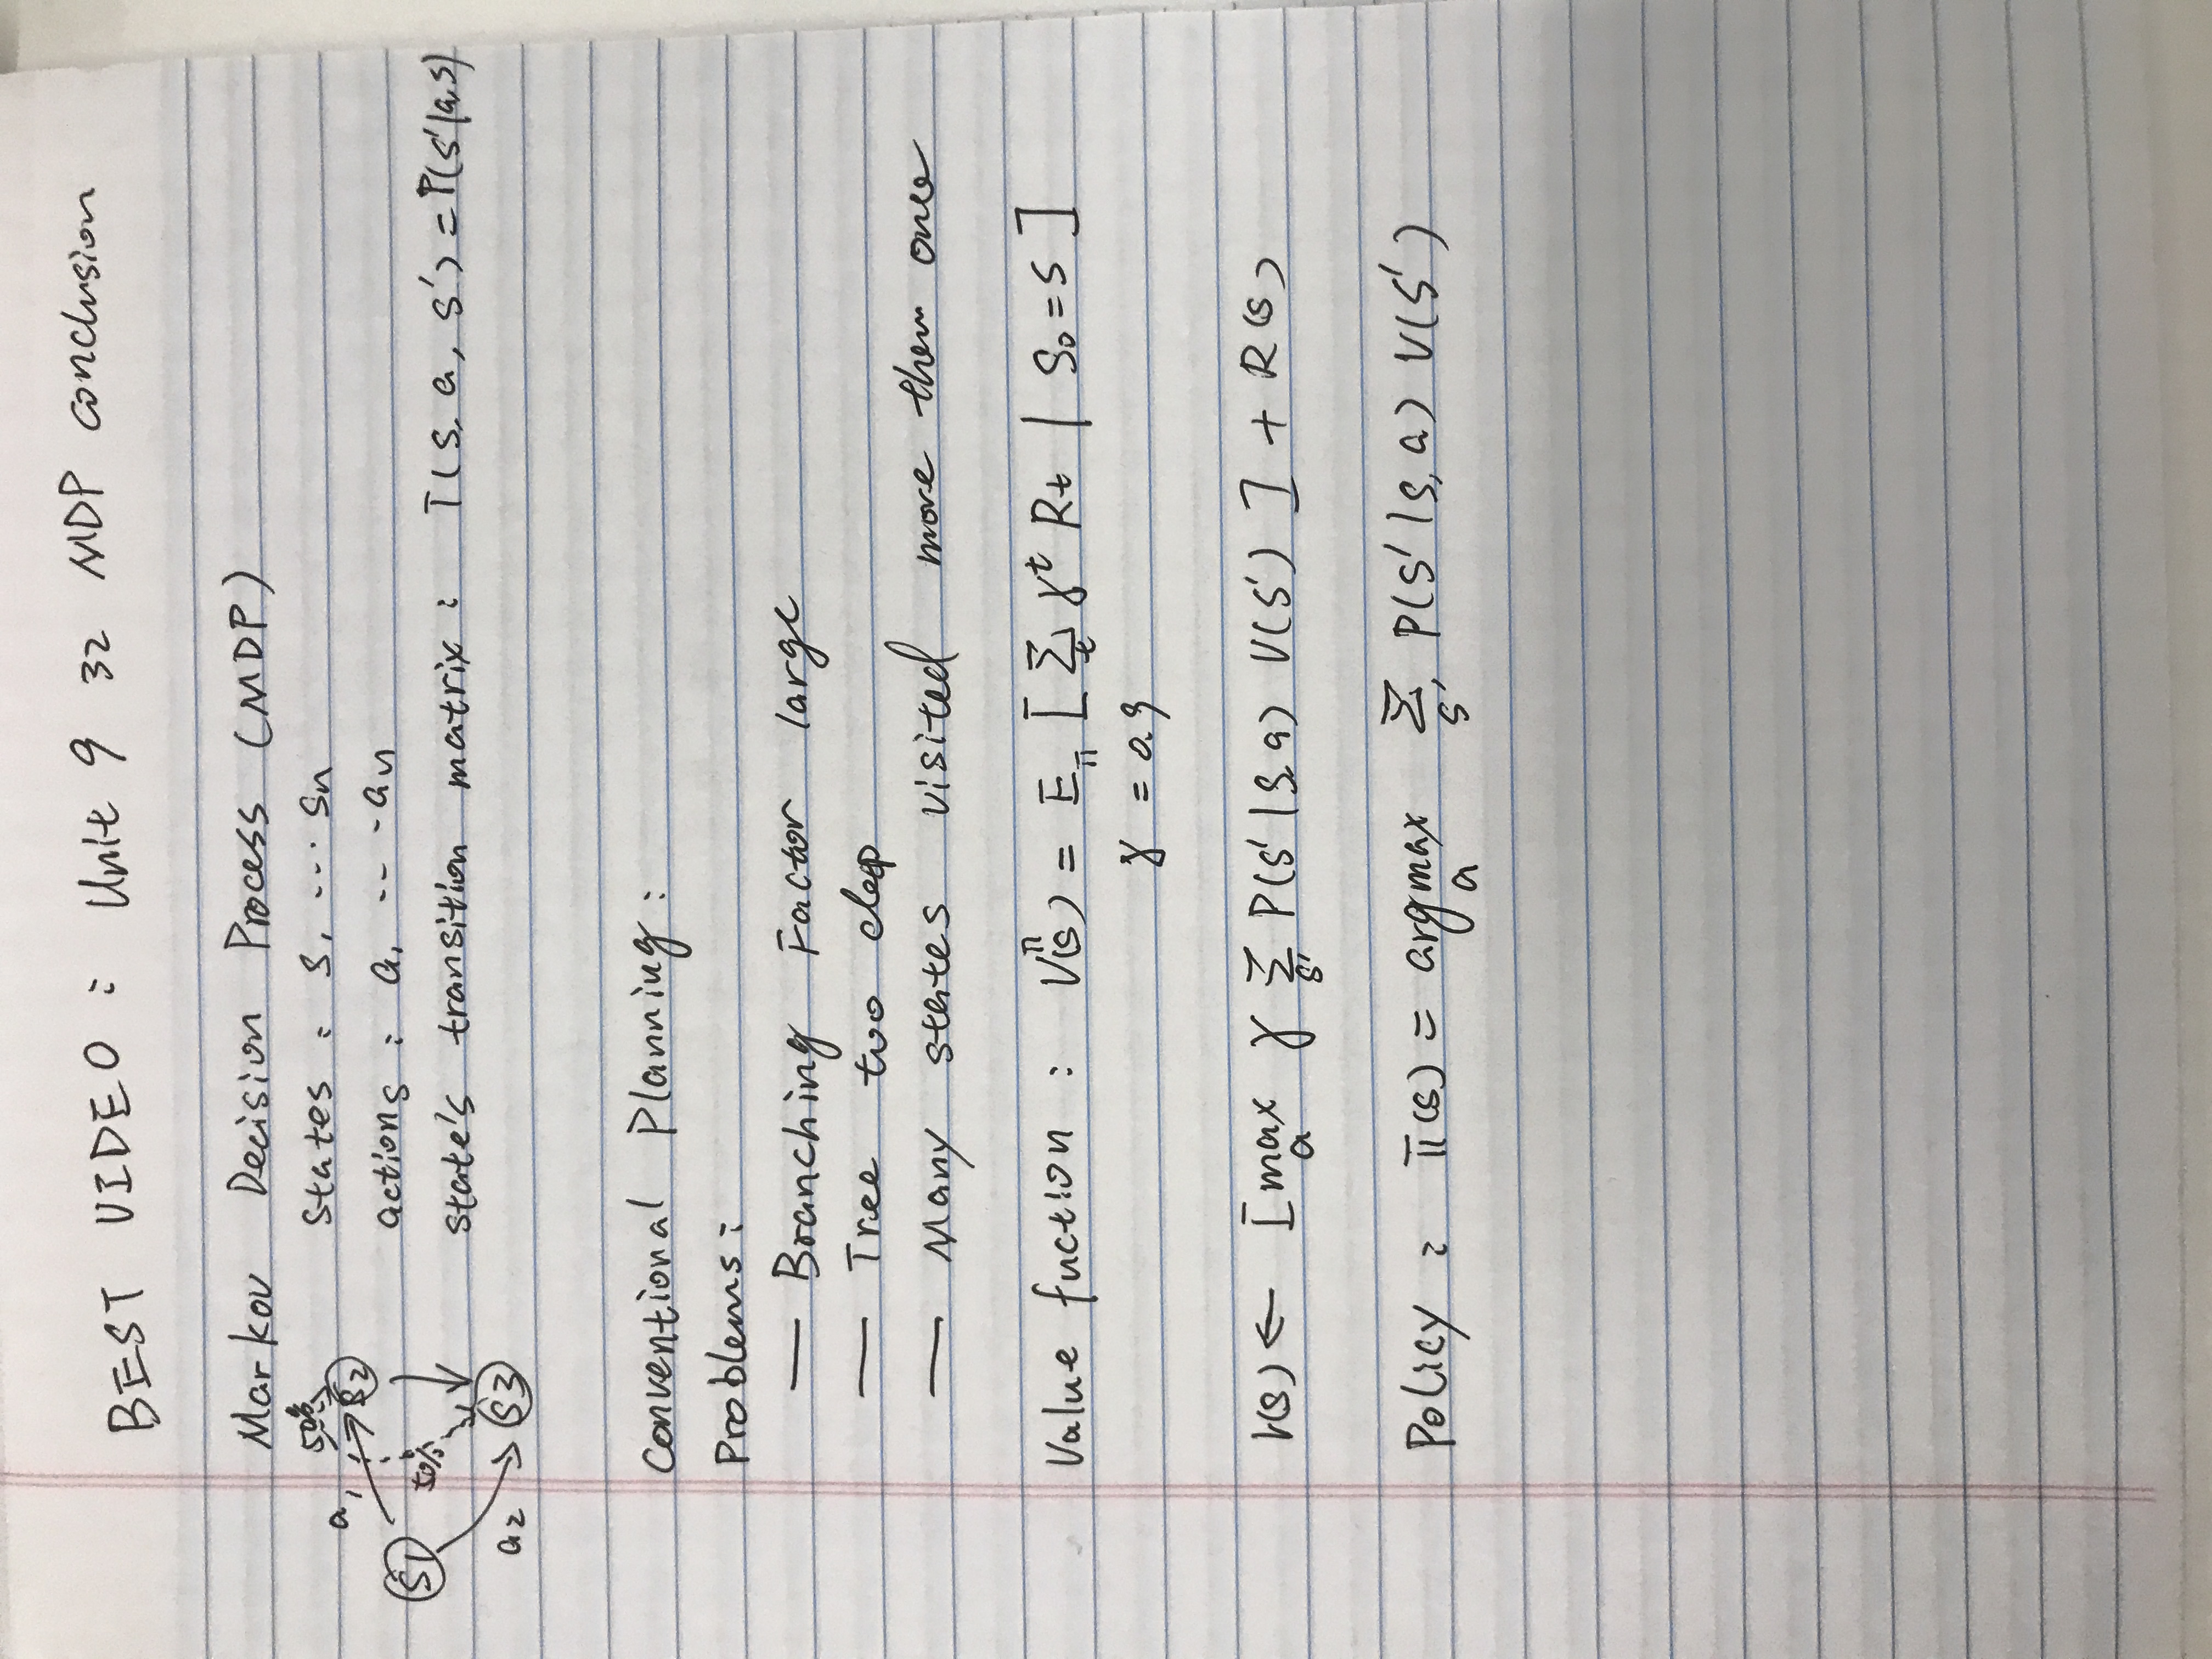 BEST VIDEO : Unit 9 32 MDP conclusion
Markov Decision Process (MDP)
states : s1 ... sn
actions : a1 ... an
state's transition matrix : T(s, a, s') = P(s'|a,s)
50%
a1
S2
S1
50%
a2
S3
Conventional Planning :
Problems :
— Branching Factor large
— Tree too deep
— Many states visited more them once
Value fuction : V^π(s) = E_π [ Σ_t γ^t Rt | S0 = S ]
γ = 0.9
V(s) ← [ max_a γ Σ_s' P(s' | s, a) V(s') ] + R(s)
Policy : π(s) = argmax_a Σ_s' P(s' | s, a) V(s')